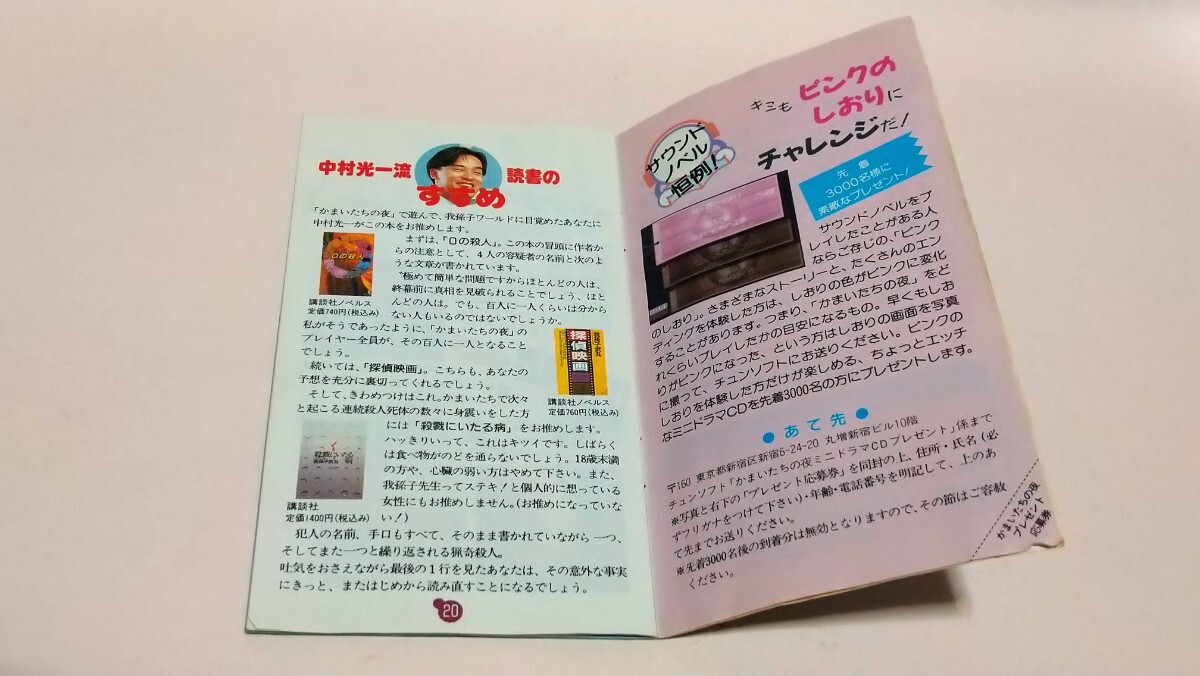 中村光一流 読書の
すすめ
「かまいたちの夜」で遊んで、我孫子ワールドに目覚めたあなたに
中村光一がこの本をお推めします。
まずは、「0の殺人」。この本の冒頭に作者か
らの注意として、4人の容疑者の名前と次のよ
うな文章が書かれています。
“極めて簡単な問題ですからほとんどの人は、
終幕前に真相を見破られることでしょう、ほと
んどの人は。でも、百人に一人くらいは分から
ない人もいるのではないでしょうか。
0の殺人
講談社ノベルス
定価740円(税込み)
私がそうであったように、「かまいたちの夜」の
プレイヤー全員が、その百人に一人となること
でしょう。
続いては、「探偵映画」。こちらも、あなたの
予想を充分に裏切ってくれるでしょう。
探偵映画
講談社ノベルス
定価760円(税込み)
そして、きわめつけはこれ。かまいたちで次々
と起こる連続殺人死体の数々に身震いをした方
には「殺戮にいたる病」をお推めします。
ハッキリいって、これはキツイです。しばらく
は食べ物がのどを通らないでしょう。18歳未満
の方や、心臓の弱い方はやめて下さい。また、
我孫子先生ってステキ!と個人的に想っている
女性にもお推めしません。(お推めになっていな
い!)
殺戮にいたる病
我孫子武丸
講談社
定価1400円(税込み)
犯人の名前、手口もすべて、そのまま書かれていながら一つ、
そしてまた一つと繰り返される猟奇殺人。
吐気をおさえながら最後の1行を見たあなたは、その意外な事実
にきっと、またはじめから読み直すことになるでしょう。
20
サウンド
ノベル
恒例!
キミも ピンクの
しおりに
チャレンジだ!
先着
3000名様に
素敵なプレゼント!
サウンドノベルをプ
レイしたことがある人
ならご存じの、「ピンク
のしおり」。さまざまなストーリーと、たくさんのエン
ディングを体験した方は、しおりの色がピンクに変化
することがあります。つまり、「かまいたちの夜」をど
れくらいプレイしたかの目安になるもの。早くもしお
りがピンクになった、という方はしおりの画面を写真
に撮って、チュンソフトにお送りください。ピンクの
しおりを体験した方だけが楽しめる、ちょっとエッチ
なミニドラマCDを先着3000名の方にプレゼントします。
●あて先●
〒160 東京都新宿区新宿5-24-20 丸増新宿ビル10階
チュンソフト「かまいたちの夜ミニドラマCDプレゼント」係まで
※写真と右下の「プレゼント応募券」を同封の上、住所・氏名(必
ずフリガナをつけて下さい)・年齢・電話番号を明記して、上のあ
て先までお送りください。
※先着3000名後の到着分は無効となりますので、その節はご容赦
ください。
かまいたちの夜
プレゼント
応募券